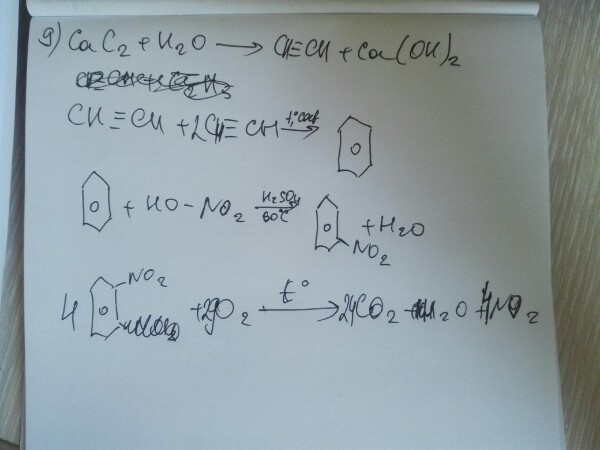 9) CaC₂ + H₂O ⟶ CH≡CH + Ca(OH)₂
CH≡CH + 2CH≡CH ⟶
+ HO - NO₂ H₂SO₄ 60°C ⟶ NO₂ + H₂O
4 NO₂ + 29O₂ t° ⟶ 24CO₂ + H₂O + 4NO₂